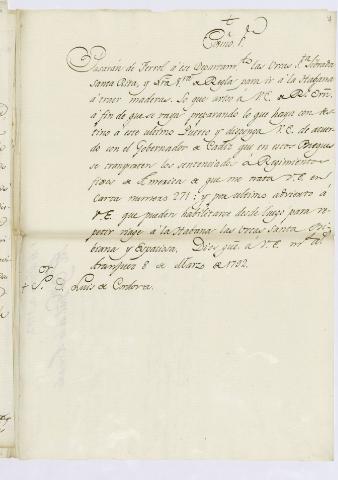 Exmo. Sr.
Pasarán de Ferrol á ese Departamto. las Urcas Sta. Librada
Santa Rita, y Ntra. Sra. de Regla para ir á la Habana
á traer maderas. Lo que aviso á V.E. de Rl. Orn.
á fin de que se vaya preparando lo que haya con des
tino á este ultimo Puerto y disponga V.E. de acuer
do con el Gobernador de Cadiz que en estos Buques
se transporten los sentenciados á Regimientos
fixos de America de que me trata V.E. en
carta numero 271: y por ultimo advierto á
V.E. que pueden habilitarse desde luego para re
petir viage á la Habana las Urcas Santa Bi
biana y Espaciosa. Dios gue. á V.E. ms. as.
Aranjuez 8 de Marzo de 1792.
Sor. Dn. Luis de Cordova.